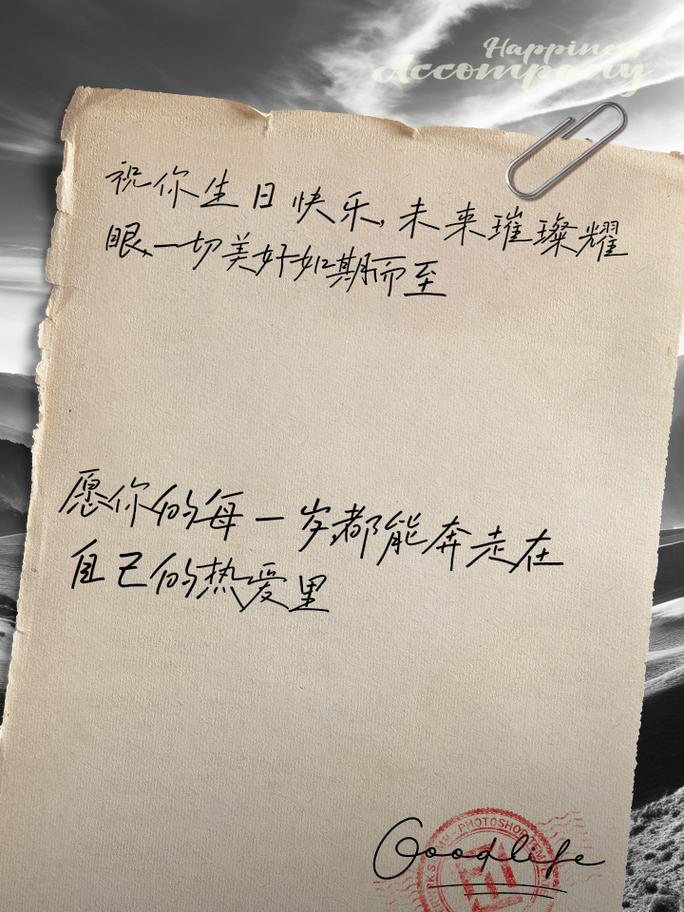 Happiness
Accompany
祝你生日快乐,未来璀璨耀
眼,一切美好如期而至
愿你的每一岁都能奔走在
自己的热爱里
PHOTOSHOP
Goodlife